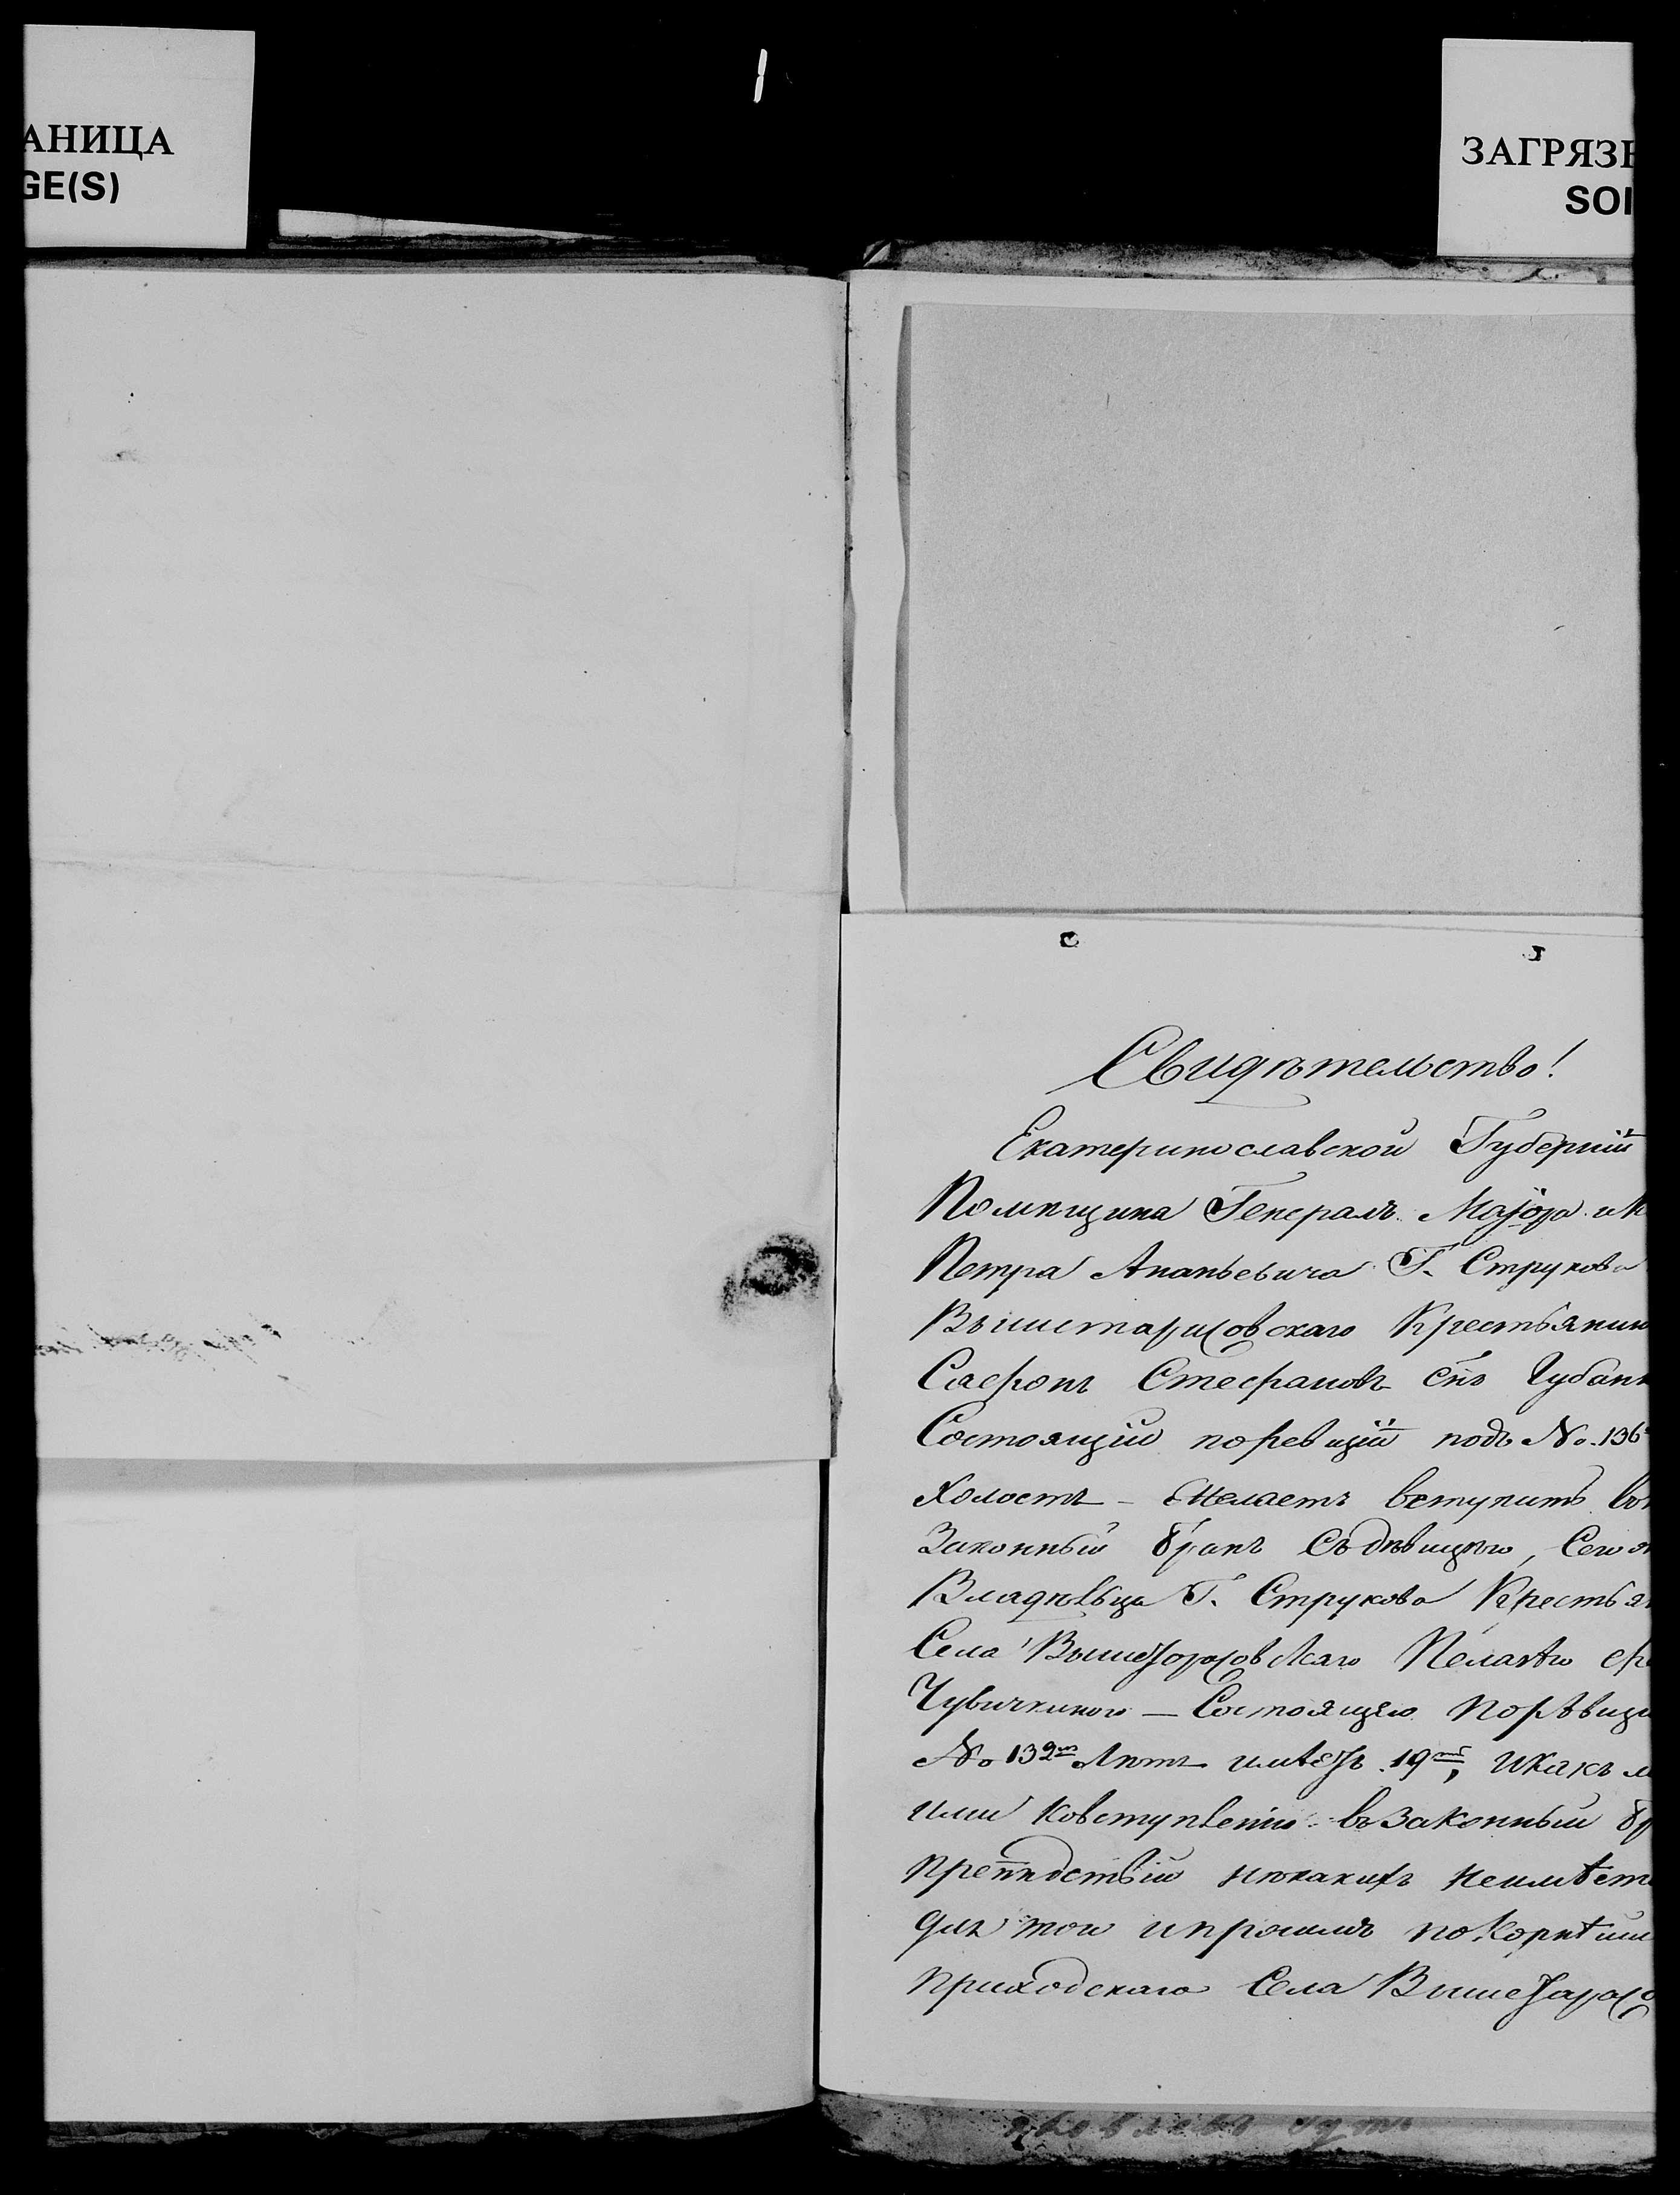 АНИЦА
GE(S)
ЗАГРЯЗН
SOI
Свидѣтельство!
Екатеринославской Губерніи
Помѣщика Генералъ Маіора и К
Петра Ананьевича Г. Струкова
Вышетарасовскаго Крестьянин
Сафронъ Стефановъ Снъ Чубан
Состоящій поревизіи подъ No. 136
холостъ - Желаетъ вступить во
Законный бракъ Съ дѣвицею, Сего
Владѣльца Г. Струкова Крестья
Села Вышетарасовскаго Пелагѣю
Чубичкиного — Состоящею поревизи
No 132 Лѣтъ имѣетъ 19, Икакъ
ими Ковступленію въ Законный бр
препядствій никакихъ неимѣет
для того и просимъ покорнѣйш
приходскаго Села Вышетарасо